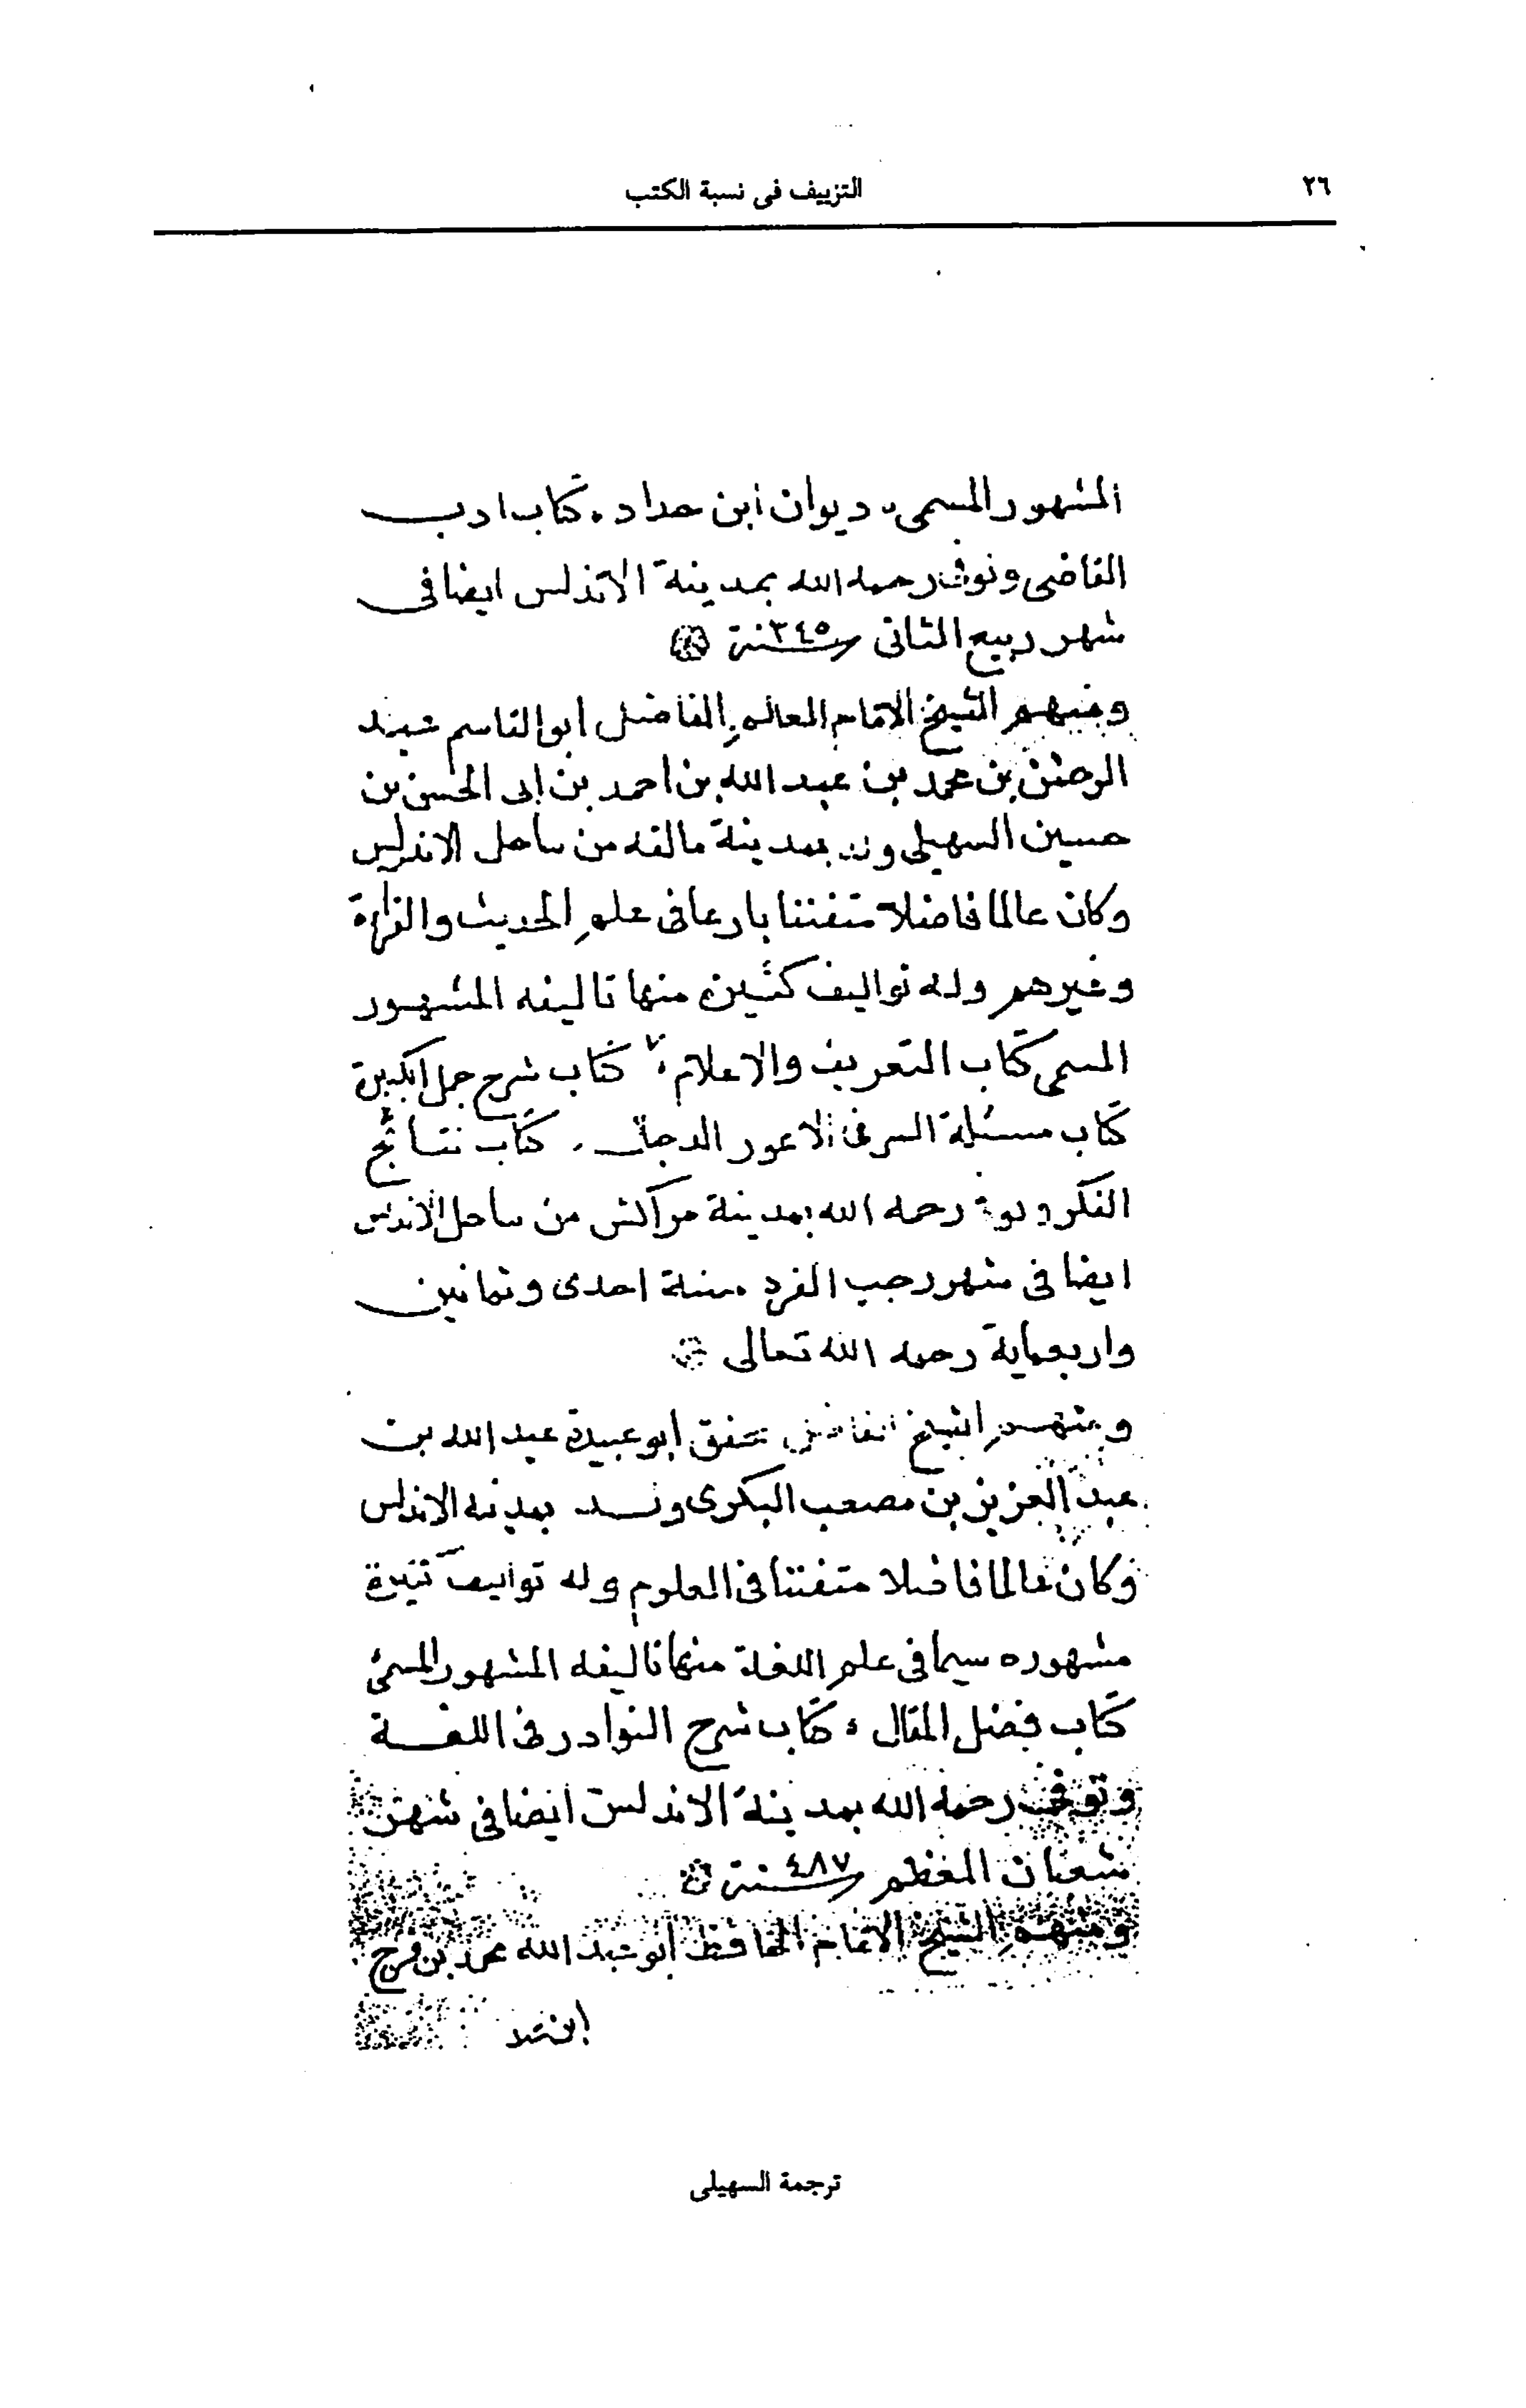 ٢٦
التزييف فى نسبة الكتب
المشهور المسمى ديوان ابن حداد . كتاب ادب
القاضى وتوفى رحمه الله بمدينة الاندلس ايضا فى
شهر ربيع الثانى سنة ٣٤٥
ومنهم الشيخ الامام العالم الفاضل ابو القاسم عبد
الرحمن بن محمد بن عبد الله بن احمد بن ابى الحسن بن
حسين السهيلى ولد بمدينة مالقه من ساحل الاندلس
وكان عالما فاضلا متفننا بارعا فى علم الحديث والقراءة
وغيرهم وله تواليف كثيره منها تاليفه المشهور
المسمى كتاب التعريف والاعلام ، كتاب شرح جمل الكبيرة
كتاب مسئلة السر فى الاعور الدجال . كتاب نتائج
الفكر وتوفى رحمه الله بمدينة مراكش من ساحل الاندلس
ايضا فى شهر رجب الفرد سنة احدى وثمانين
واربعماية رحمه الله تعالى
ومنهم الشيخ الفاضل ابو عبيدة عبد الله بن
عبد العزيز بن مصعب البكرى ولد بمدينه الاندلس
وكان عالما فاضلا متفننا فى العلوم وله تواليف كثيرة
مشهوره سيما فى علم اللغة منها تاليفه المشهور المسمى
كتاب فصل المقال ، كتاب شرح النوادر فى اللغة
وتوفى رحمه الله بمدينة الاندلس ايضا فى شهر
شعبان المعظم سنة ٤٨٧
ومنهم الشيخ الامام الحافظ ابو عبد الله محمد بن فرج
ترجمة السهيلى